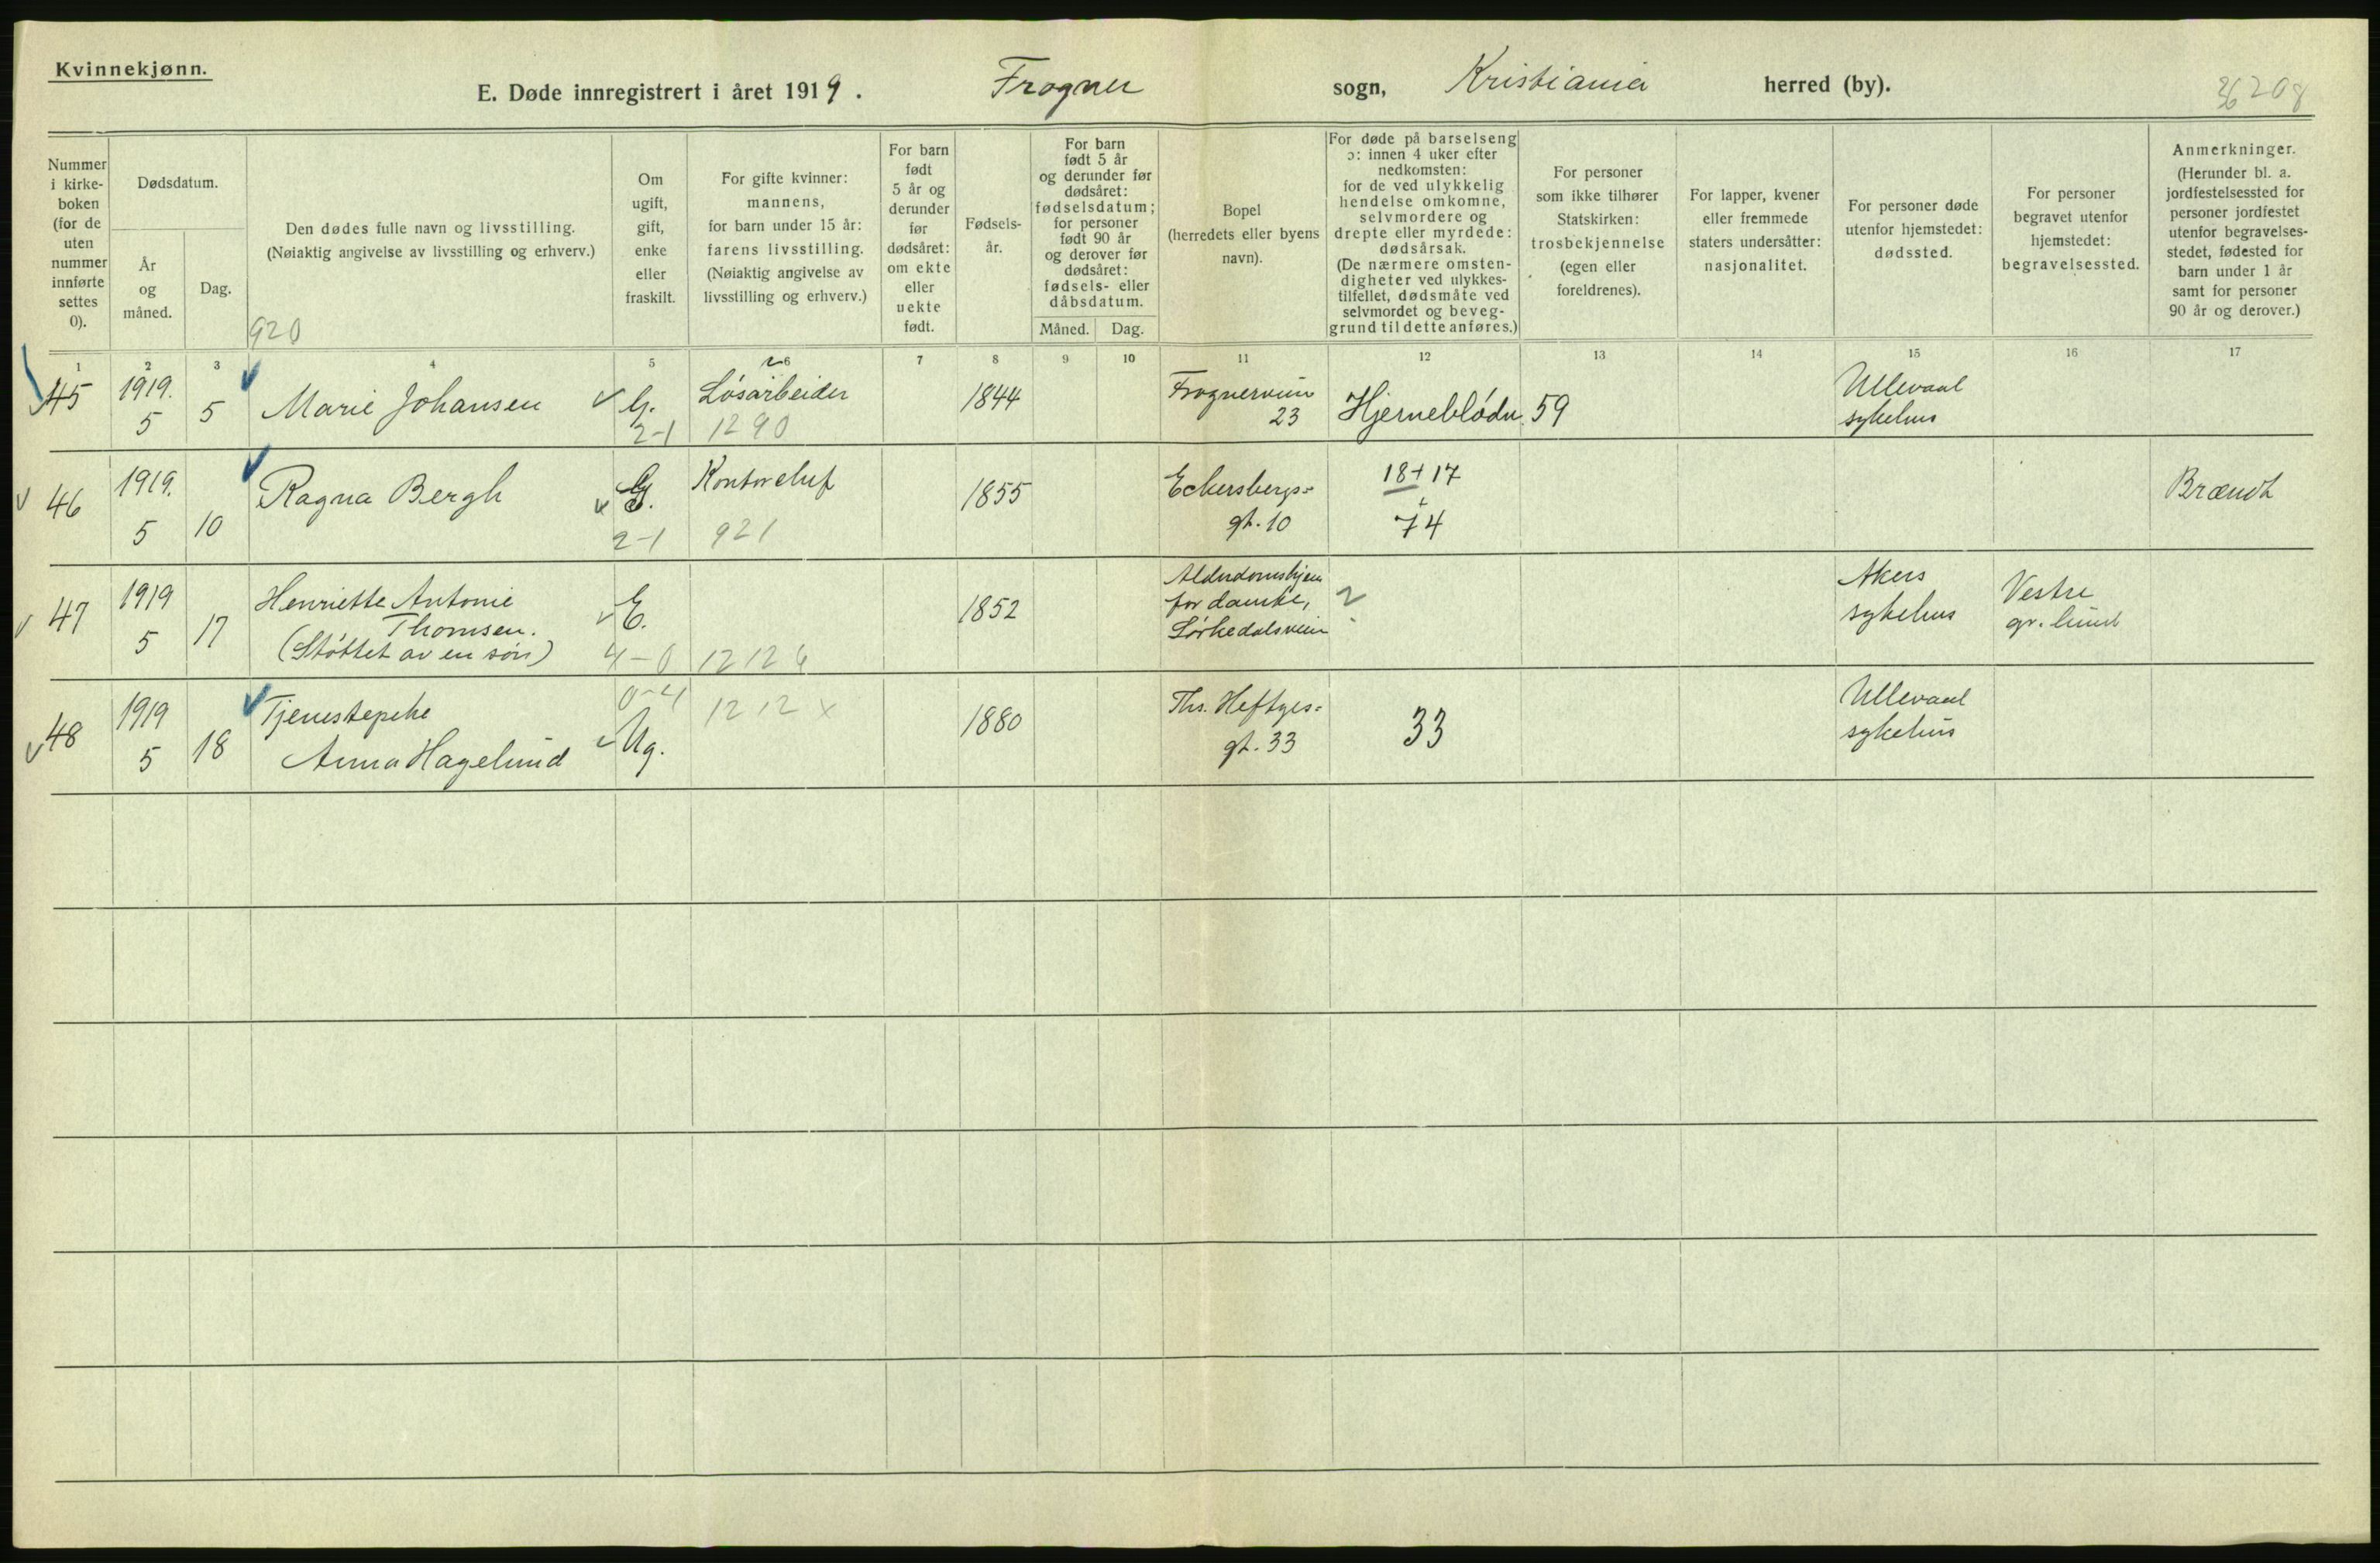 Kvinnekjønn.
E. Døde innregistrert i året 1919. Frogner sogn, Kristiania herred (by).
Nummer i kirke-boken (for de uten nummer innførte settes 0).
Dødsdatum.
År og måned.
Dag.
Den dødes fulle navn og livsstilling.
(Nøiaktig angivelse av livsstilling og erhverv.)
920
Om ugift, gift, enke eller fraskilt.
For gifte kvinner: mannens, for barn under 15 år: farens livsstilling. (Nøiaktig angivelse av livsstilling og erhverv.)
For barn født 5 år og derunder før dødsåret: om ekte eller uekte født.
Fødsels-år.
For barn født 5 år og derunder før dødsåret: fødselsdatum; for personer født 90 år og derover før dødsåret: fødsels- eller dåbsdatum.
Måned. Dag.
Bopel (herredets eller byens navn).
For døde på barselseng ɔ: innen 4 uker efter nedkomsten: for de ved ulykkelig hendelse omkomne, selvmordere og drepte eller myrdede: dødsårsak. (De nærmere omsten-digheter ved ulykkes-tilfellet, dødsmåte ved selvmordet og beveg-grund til dette anføres.)
For personer som ikke tilhører Statskirken: trosbekjennelse (egen eller foreldrenes).
For lapper, kvener eller fremmede staters undersåtter: nasjonalitet.
For personer døde utenfor hjemstedet: dødssted.
For personer begravet utenfor hjemstedet: begravelsessted.
Anmerkninger. (Herunder bl. a. jordfestelsessted for personer jordfestet utenfor begravelses-stedet, fødested for barn under 1 år samt for personer 90 år og derover.)
1 2 3 4 5 6 7 8 9 10 11 12 13 14 15 16 17
45 1919. 5 5 Marie Johansen G. 2-1 Løsarbeider 1290 1844 Frognerveien 23 Hjerneblødn. 59 Ullevaal sykehus
46 1919. 5 10 Ragna Bergh G. 2-1 921 1855 Eckersbergs= gt. 10 18+17 74 Brændt
47 1919 5 17 Henriette Antonie Thomsen. (Støttet av en søn) E. 4-0 1852 Alderdomshjem for danske, Sørkedalsveien ? Akers sykehus Vestre gr. lund
48 1919 5 18 Tjenestepike Anna Hagelund 0-4 Ug. 1212 x 1880 Ths. Heftyes= gt. 33 33 Ullevaal sykehus